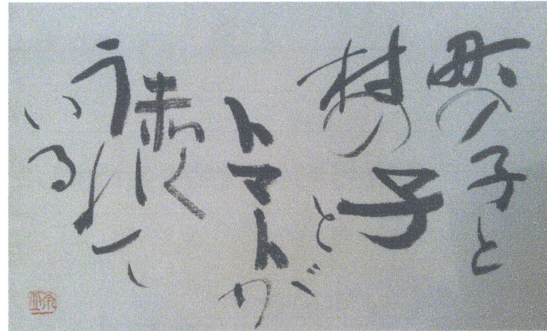 町の子と
村の子と
トマトが
赤く
うれて
いる